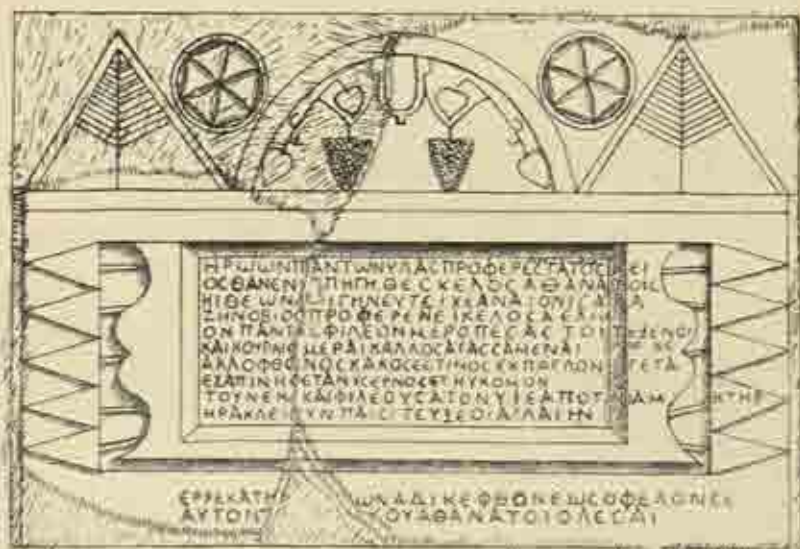 ΗΡωωΝΠΑΝΤωΝΥΛΑϹΠΡΟΦΕΡΕϹΤΑΤΟϹΑΙΕΙ
ΟϹΘΑΝΕΝ ΠΗΓΗΘΕϹΚΕΛΟϹΑΘΑΝΑΤΟΙϹ
ΗΙΘΕωΝ ΙΓΗΝΕΥΤΕΙΧΕΑΝΑΙΟΝΙ
ΖΗΝΟΒΙΟϹΠΡΟΦΕΡΕΝΕΙΚΕΛΟϹΑΕΛΙ
ΟΝΠΑΝΤΑϹΦΙΛΕΟΝΜΕΡΟΠΕϹΑϹΤΟΙΤΕΞΕΝΟΙ
ΚΑΙΚΟΥΡ ΜΕΡΑΙΚΑΛΛΟϹΑΓΑϹϹΑΜΕΝΑΙ
ΑΛΛΟΦΘΟΝΟϹΚΑΚΟϹΕϹΤΙΝΟϹΕΚΠΑΓΛΟΝ ΓΕΤΑ
ΕΞΑΠΙΝΗϹΕΤΑΝΥϹΕΡΝΟϹΕΤΗΥΚΟΜΟΝ
ΤΟΥΝΕΚ ΚΑΙΦΙΛΕΟΥϹΑΤΟΝΥΙΕΑΠΟΤΝΙΑΜ ΗΤΗΡ
ΗΡΑΚΛΕΙ ΥΝΠΑΙϹΙΤΕΥΞΕΟΙΑΓΛΑΙΗΝ
ΕΡΡΕΚΑΤΗΦ ωΝΑΔΙΚΕΦΘΟΝΕωϹΟΦΕΛΟΝϹΕ
ΑΥΤΟΝΤ ΟΥΑΘΑΝΑΤΟΙΟΛΕϹΑΙ